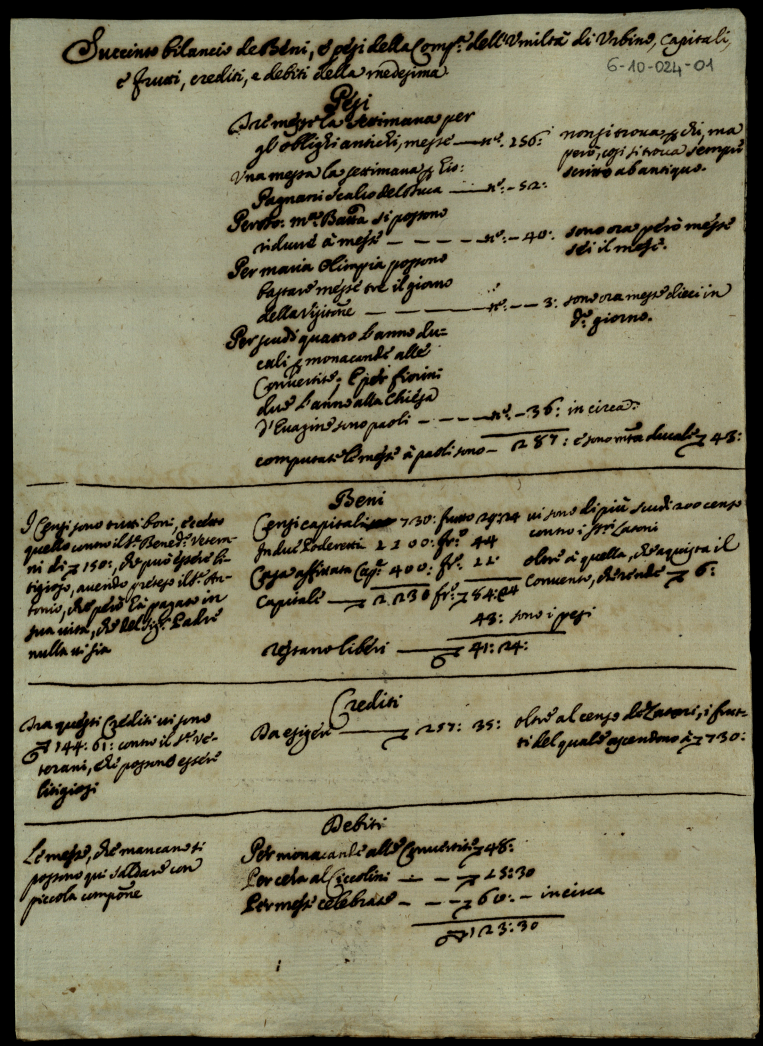 Succinto bilancio de Beni, e pesi della Comp.a dell'Umiltà di Urbino, Capitali,
e frutti, crediti, e debiti della medesima.
6-10-024-01
Pesi
Tre messe la settimana per
gl'oblighi antichi, messe — n.o 156:
non si trova p chi, ma
però, così si trova sempre
scritto ab antiquo.
Una messa la settimana p Gio:
Pagnani Scalco del Duca — n.o - 52:
Per M.a Batta si possono
ridurre à messe — n.o - 40:
sono ora però messe
sei il mese.
Per maria Olimpia possono
bastare messe tre il giorno
della Visitne — n.o - 3:
sono ora messe dieci in
do giorno.
Per scudi quattro l'anno du-
cali p monacande alle
Convertite, e per fiorini
due l'anno alla Chiesa
d' sono paoli — n.o - 36: in circa:
computate le messe à paoli sono - 287: e sono mta ducale 43:
Beni
I Censi sono tutti boni, eccetto
quello contro il Sr Bened. Vetera-
ni di 150:, che può essere li-
tigioso, avendo preteso il Sr An-
tonio, che però hà pagato in
sua vita, che del Sigr Padre
nulla vi sia
Censi capitali 730: frutto 29:24
vi sono di più scudi 200 censo
contro i Sri Lasoni
In due Poderetti 1100: fr.o 44
Casa affittata Cap.e 400: fr.o 11:
oltre à quella, che aquista il
Convento, che rende 6:
Capitale — 2230 fr.o 84:24
43: sono i pesi
restano liberi — 41: 24:
Crediti
Tra questi Crediti vi sono
144: 61: contro il Sr Ve-
terani, che possono essere
litigiosi
Da esigere — 257: 35:
oltre al censo de Lasoni, i frut-
ti del quale ascendono à 730:
Debiti
Le messe, che mancano si
possono qui saldare con
piccola compone
Per monacande alle Convertite 48:
Per cera al Ciccolini — 15:30
Per messe celebrate — 60: - in circa
123:30